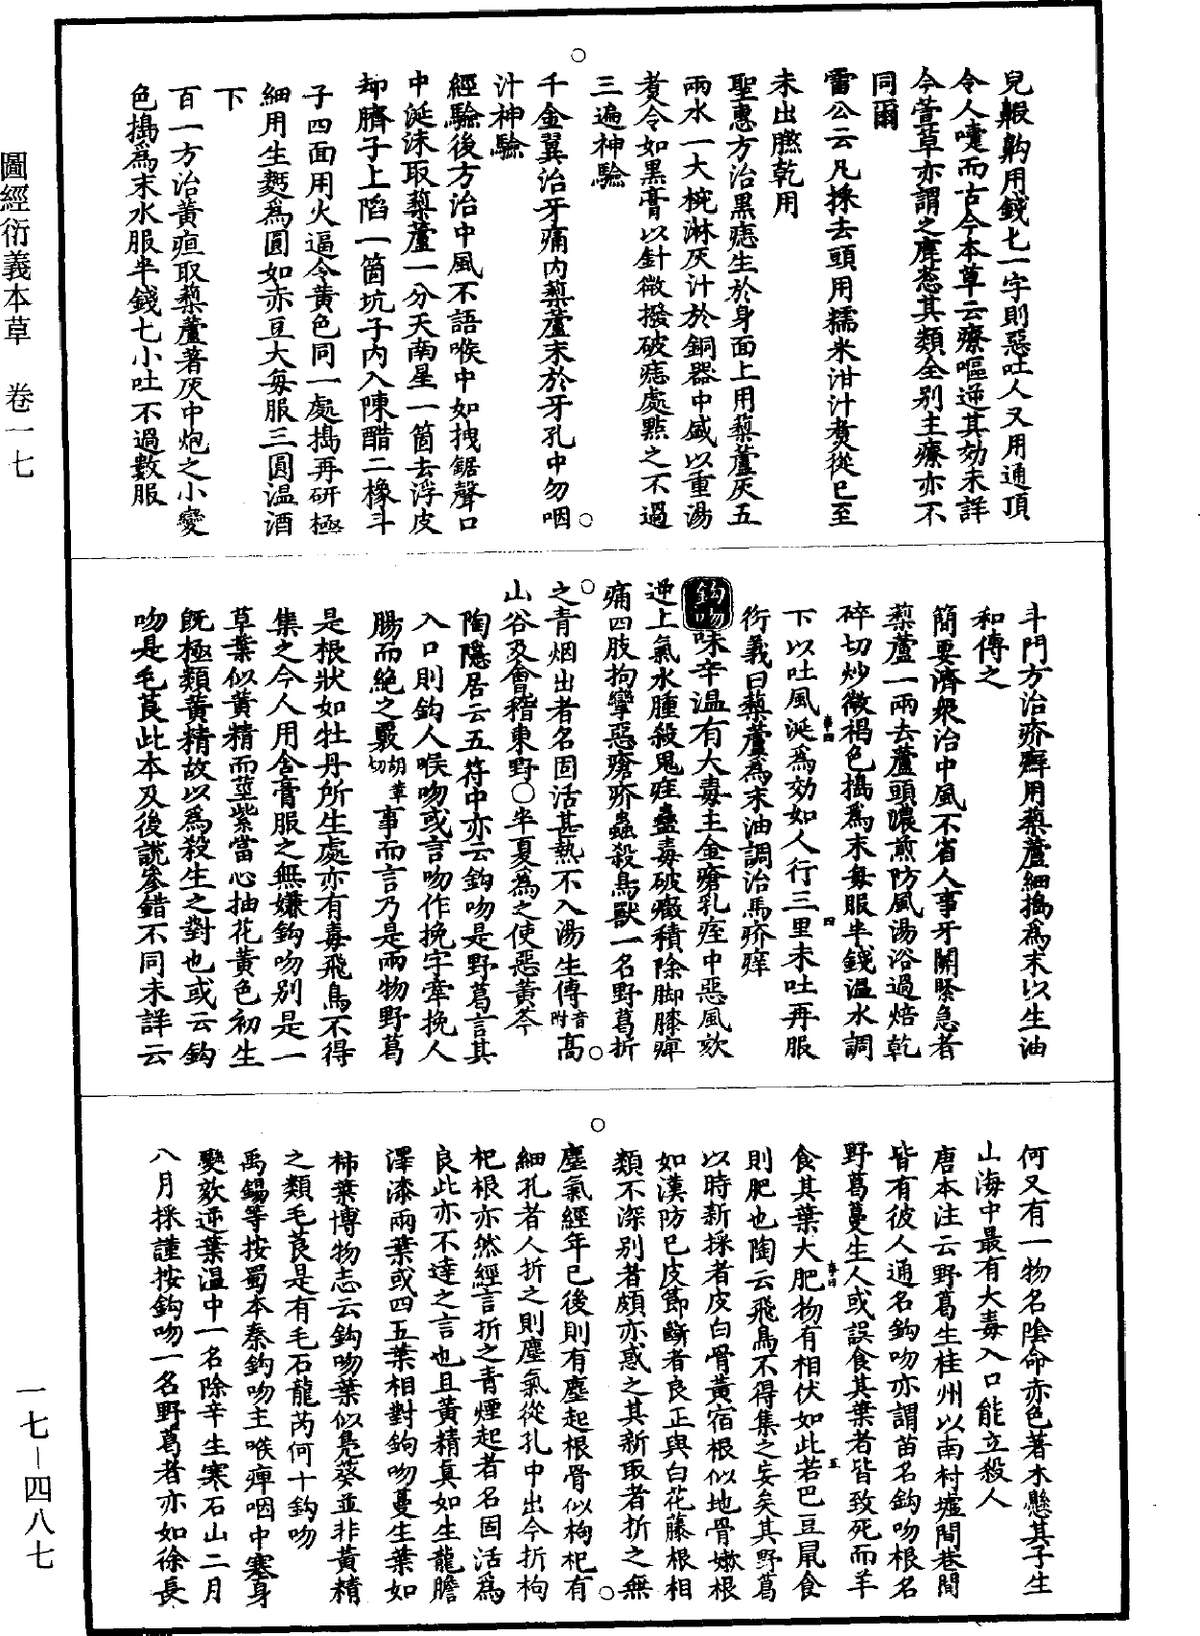 兒齁䶎用錢匕一字則惡吐人又用通頂
令人嚏而古今本草云療嘔逆其効未詳
今萱草亦謂之鹿葱其類全别主療亦不
同爾
雷公云凡採去頭用糯米泔汁煑從巳至
未出㬠乾用
聖惠方治黑痣生於身面上用藜蘆灰五
兩水一大椀淋灰汁於銅器中盛以重湯
煑令如黑膏以針微撥破痣處點之不過
三遍神驗
千金翼治牙痛内藜蘆末於牙孔中勿咽
汁神驗
經驗後方治中風不語喉中如拽鋸聲口
中涎沫取藜蘆一分天南星一箇去浮皮
却臍子上陷一箇坑子内入陳醋二橡斗
子四面用火逼令黄色同一處搗再研極
細用生麪爲圓如赤豆大每服三圓温酒
下
百一方治黄疸取藜蘆著灰中炮之小變
色搗爲末水服半錢匕小吐不過數服
斗門方治疥癬用藜蘆細搗爲末以生油
和傅之
簡要濟衆治中風不省人事牙關緊急者
藜蘆一兩去蘆頭濃煎防風湯浴過焙乾
碎切炒微褐色搗爲末每服半錢温水調
下以吐風涎爲効如人行三里未吐再服
衍義曰藜蘆爲末油調治馬疥痒
鈎吻味辛温有大毒主金瘡乳痓中惡風欬
逆上氣水腫殺鬼疰蠱毒破癥積除脚膝痹
痛四肢拘攣惡瘡疥蟲殺鳥獸一名野葛折
之青烟出者名固活甚熱不入湯生傅音附高
山谷及會稽東野○半夏爲之使惡黄芩
陶隱居云五符中亦云鈎吻是野葛言其
入口則鈎人喉吻或言吻作挽字牽挽人
腸而絶之覈胡革切事而言乃是兩物野葛
是根狀如牡丹所生處亦有毒飛鳥不得
集之今人用合膏服之無嫌鈎吻别是一
草葉似黄精而莖紫當心抽花黄色初生
旣極類黄精故以爲殺生之對也或云鈎
吻是毛莨此本及後説參錯不同未詳云
何又有一物名陰命赤色著木懸其子生
山海中最有大毒入口能立殺人
唐本注云野葛生桂州以南村墟閭巷間
皆有彼人通名鈎吻亦謂苗名鈎吻根名
野葛蔓生人或誤食其葉者皆致死而羊
食其葉大肥物有相伏如此若巴豆鼠食
則肥也陶云飛鳥不得集之妄矣其野葛
以時新採者皮白骨黄宿根似地骨嫩根
如漢防已皮節斷者良正與白花藤根相
類不深别者頗亦惑之其新取者折之無
塵氣經年已後則有塵起根骨似枸杞有
細孔者人折之則塵氣從孔中出今折枸
杞根亦然經言折之青煙起者名固活爲
良此亦不達之言也且黄精直如生龍膽
澤漆兩葉或四五葉相對鈎吻蔓生葉如
柿葉博物志云鈎吻葉似凫葵並非黄精
之類毛莨是有毛石龍芮何干鈎吻
禹錫等按蜀本秦鈎吻主喉痺咽中塞身
變欬逆葉温中一名除辛生寒石山二月
八月採謹按鈎吻一名野葛者亦如徐長
圖經衍義本草　卷一七
一七—四八七